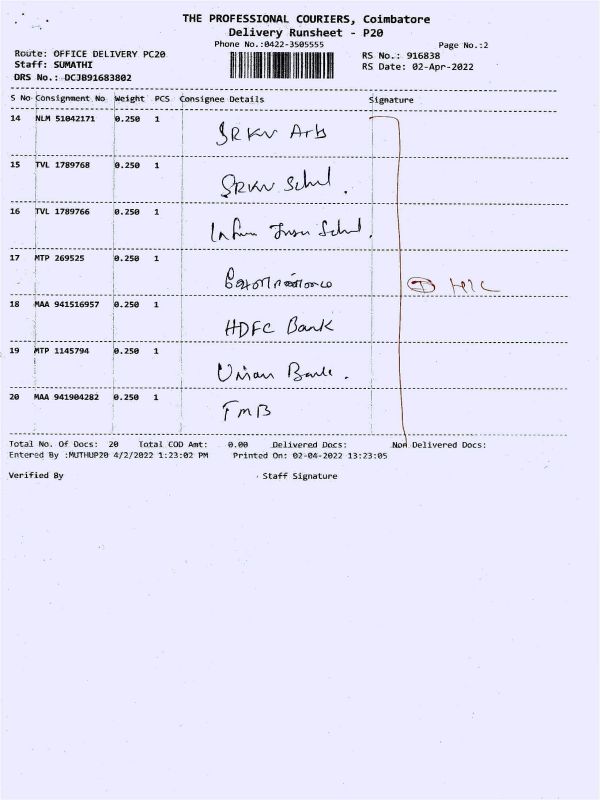 THE PROFESSIONAL COURIERS, Coimbatore
Delivery Runsheet - P20
Phone No.:0422-3505555 Page No.:2
Route: OFFICE DELIVERY PC20 RS No.: 916838
Staff: SUMATHI RS Date: 02-Apr-2022
DRS No.: DCJB91683802
S No Consignment No Weight PCS Consignee Details Signature
14 NLM 51042171 0.250 1 SRKV Arts
15 TVL 1789768 0.250 1 SRKV School.
16 TVL 1789766 0.250 1
17 MTP 269525 0.250 1
18 MAA 941516957 0.250 1 HDFC Bank
19 MTP 1145794 0.250 1 Union Bank.
20 MAA 941904282 0.250 1 TMB
Total No. Of Docs: 20 Total COD Amt: 0.00 Delivered Docs: Non Delivered Docs:
Entered By :MUTHUP20 4/2/2022 1:23:02 PM Printed On: 02-04-2022 13:23:05
Verified By Staff Signature